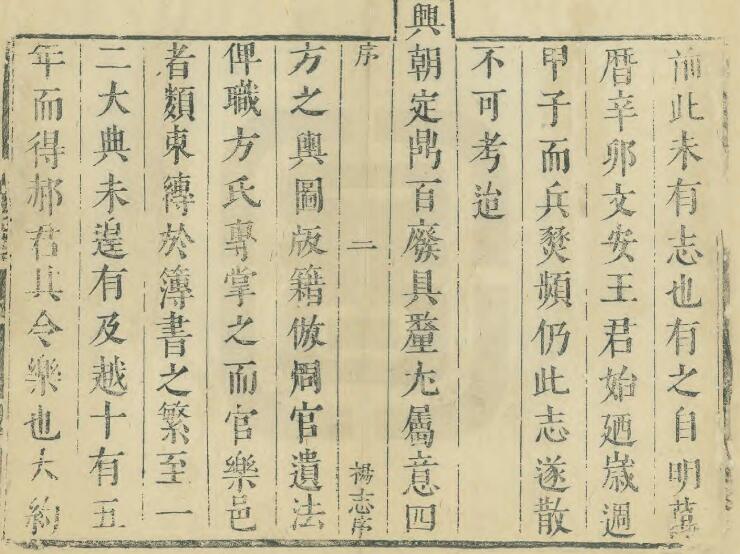 前此未有志也有之自明萬
曆辛卯文安王君始廼歲週
甲子而兵燹頻仍此志遂散
不可考迨
興朝定鼎百廢具釐尤屬意四
序 二 楊志序
方之輿圖版籍倣周官遺法
俾職方氏專掌之而官樂邑
者類束縛於簿書之繁至一
二大典未遑有及越十有五
年而得郝君其令樂也大約